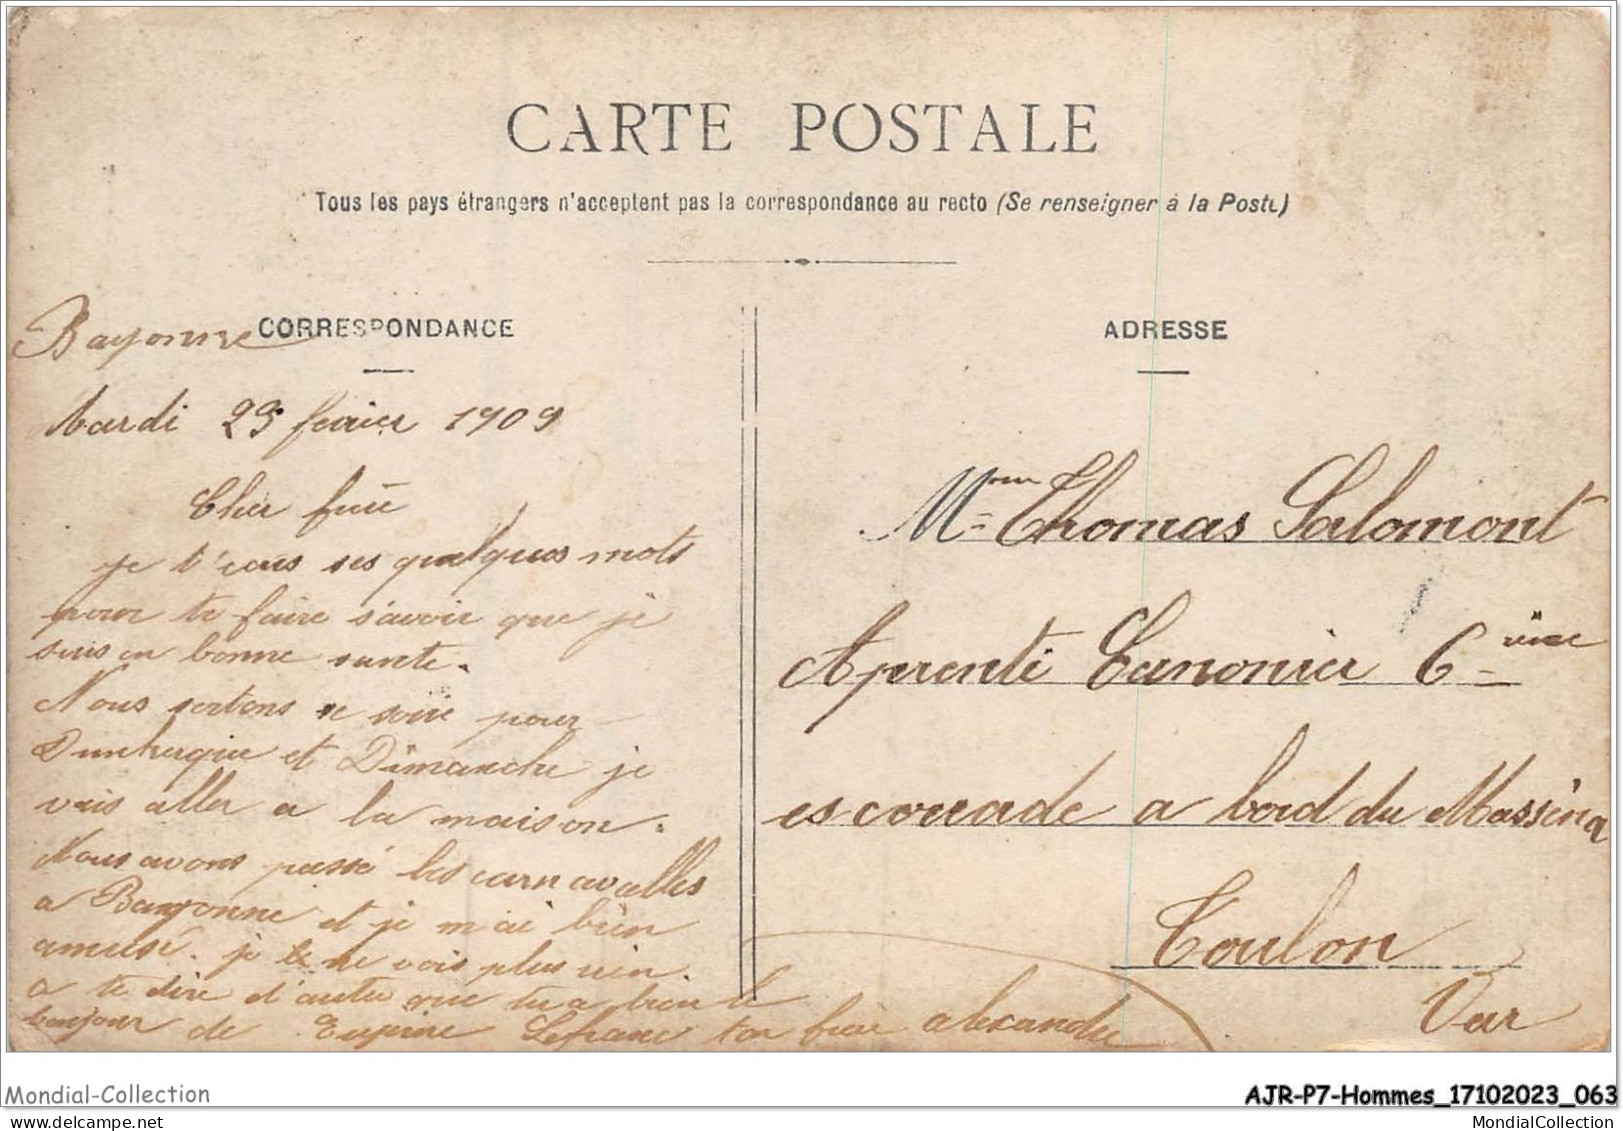 CARTE POSTALE
Tous les pays étrangers n'acceptent pas la correspondance au recto (Se renseigner à la Poste)
CORRESPONDANCE
ADRESSE
Bayonne
Mardi 23 fevrier 1909
Cher frère
je t'écris ses quelques mots
pour te faire savoir que je
suis en bonne sante.
Nous sortons ce soir pour
Dunkerque et Dimanche je
vais aller a la maison.
Nous avons passé les carnavalles
a Bayonne et je m'ai bien
amusé. je ne vois plus rien
a te dire d'autre que tu a bien le
bonjour de Eugénie Lefranc ton frère alexandre
Thomas Salomont
Aprenti Canonier 6
escouade a bord du Masséna
Toulon
Var
Mondial-Collection
AJR-P7-Hommes_17102023_063
MondialCollection